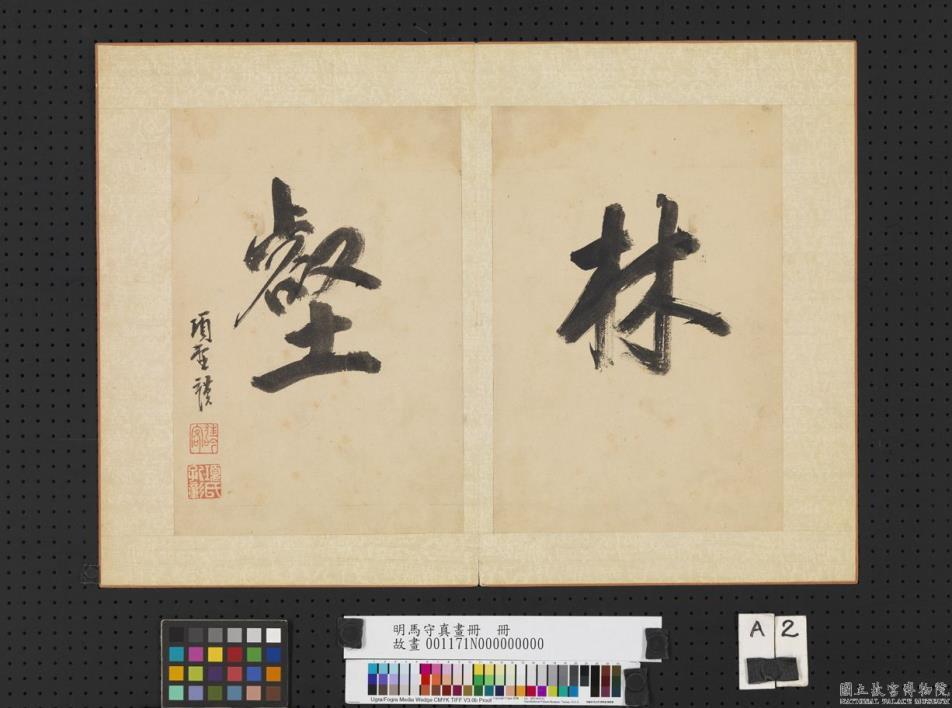 林
壑
項聖謨
明馬守真畫冊　冊
故畫 001171N000000000
A 2
國立故宮博物院
NATIONAL PALACE MUSEUM